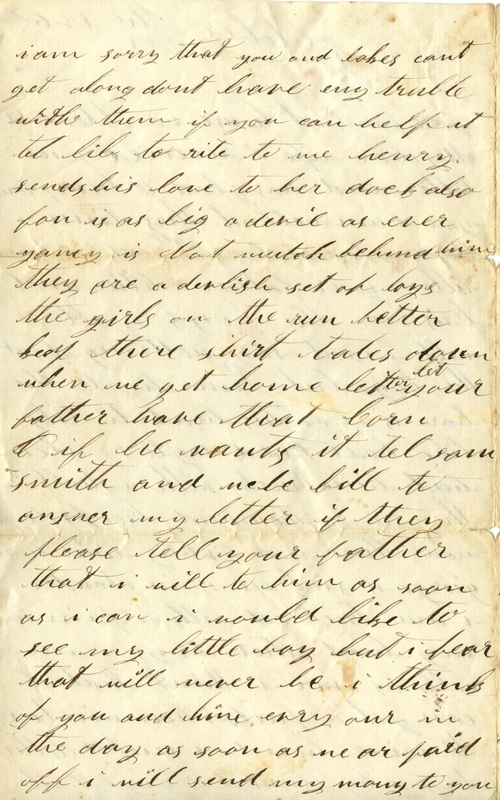 i am sorry that you and lokes cant
get along dont have eny truble
with them if you can help it
tel lib to rite to me henry
sends his love to her dock also
fon is as big a devil as ever
yancy is Not mutch behind him
they are a devlish set of boys
the girls on the run better
keep there shirt tales down
when we get home let your
father have that corn
if he wants it tel sam
smith and uncle bill to
answer my letter if they
please tell your father
that i will to him as soon
as i can i would like to
see my little boy but i fear
that will never be i think
of you and him evry our in
the day as soon as we ar paid
off i will send my mony to you